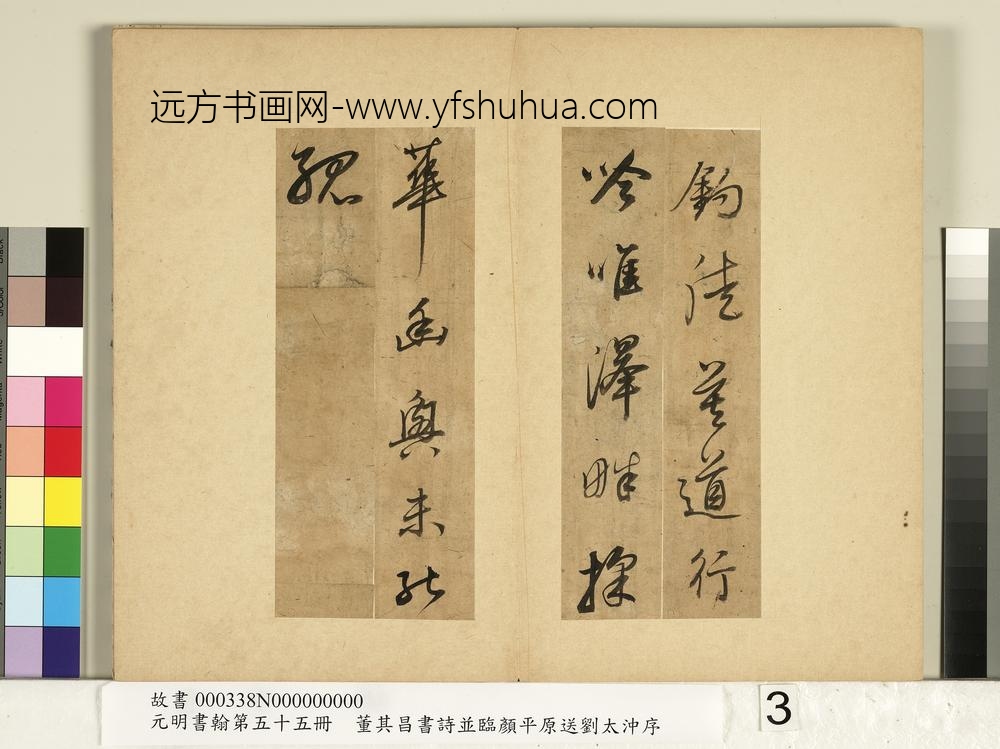 远方书画网-www.yfshuhua.com
釣徒莫道行
吟唯澤畔採
華幽興未能
孤
故書 000338N000000000
元明書翰第五十五冊 董其昌書詩並臨顏平原送劉太沖序
3